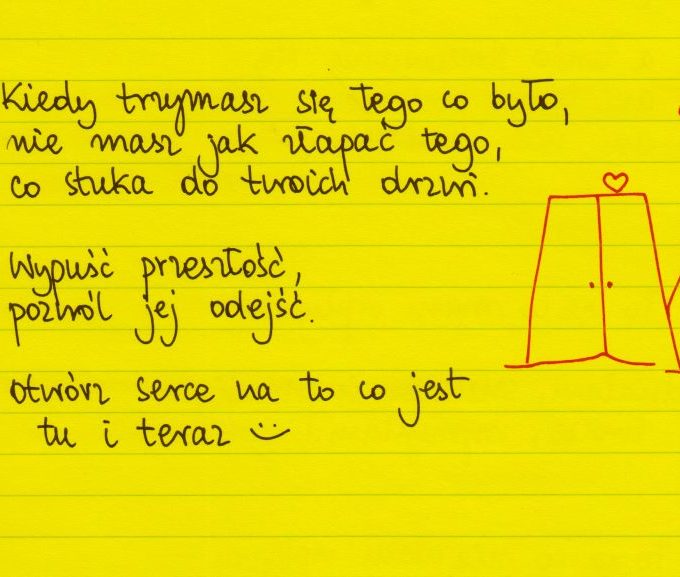 Kiedy trzymasz się tego co było,
nie masz jak złapać tego,
co stuka do twoich drzwi.
Wypuść przeszłość,
pozwól jej odejść.
Otwórz serce na to co jest
tu i teraz :)